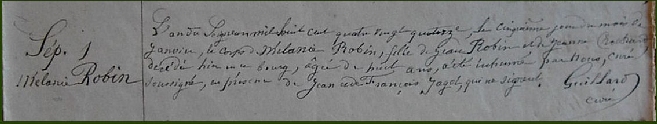 Sép. 1
Mélanie Robin
L'an du Seigneur mil huit cent quatre vingt quatorze, le cinquième jour du mois de
Janvier, le corps de Mélanie Robin, fille de Jean Robin et de Jeanne
décédée hier au bourg, âgée de huit ans, a été inhumé par Nous, curé
soussigné, en présence de Jean et de François Jagot, qui ne signent. Guillard
curé